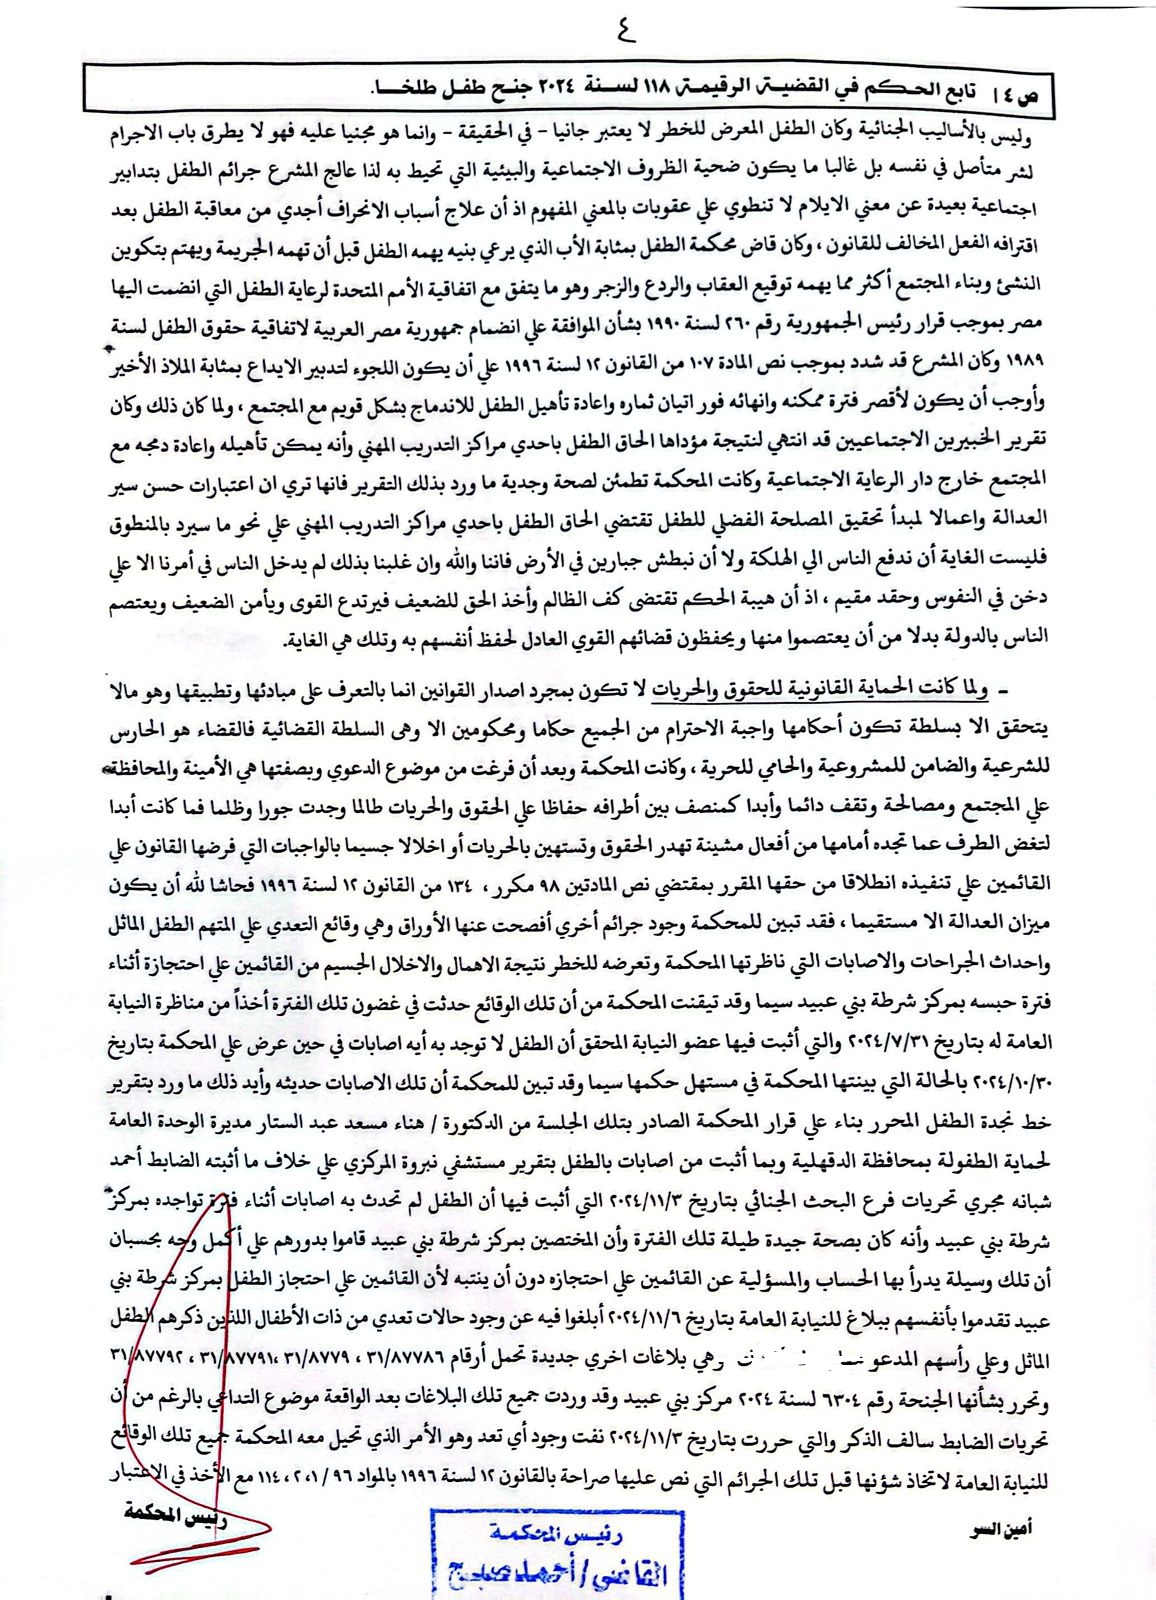 ٤
ص ٤ | تابع الحكم في القضية الرقيمة ١١٨ لسنة ٢٠٢٤ جنح طفل طلخا.
وليس بالأساليب الجنائية وكان الطفل المعرض للخطر لا يعتبر جانيا – في الحقيقة – وانما هو مجنيا عليه فهو لا يطرق باب الاجرام
لشر متأصل في نفسه بل غالبا ما يكون ضحية الظروف الاجتماعية والبيئية التي تحيط به لذا عالج المشرع جرائم الطفل بتدابير
اجتماعية بعيدة عن معني الايلام لا تنطوي علي عقوبات بالمعني المفهوم اذ أن علاج أسباب الانحراف أجدي من معاقبة الطفل بعد
اقترافه الفعل المخالف للقانون ، وكان قاض محكمة الطفل بمثابة الأب الذي يرعي بنيه يهمه الطفل قبل أن تهمه الجريمة ويهتم بتكوين
النشئ وبناء المجتمع أكثر مما يهمه توقيع العقاب والردع والزجر وهو ما يتفق مع اتفاقية الأمم المتحدة لرعاية الطفل التي انضمت اليها
مصر بموجب قرار رئيس الجمهورية رقم ٢٦٠ لسنة ١٩٩٠ بشأن الموافقة علي انضمام جمهورية مصر العربية لاتفاقية حقوق الطفل لسنة
١٩٨٩ وكان المشرع قد شدد بموجب نص المادة ١٠٧ من القانون ١٢ لسنة ١٩٩٦ علي أن يكون اللجوء لتدبير الايداع بمثابة الملاذ الأخير
وأوجب أن يكون لأقصر فترة ممكنه وانهائه فور اتيان ثماره واعادة تأهيل الطفل للاندماج بشكل قويم مع المجتمع ، ولما كان ذلك وكان
تقرير الخبيرين الاجتماعيين قد انتهي لنتيجة مؤداها الحاق الطفل باحدي مراكز التدريب المهني وأنه يمكن تأهيله واعادة دمجه مع
المجتمع خارج دار الرعاية الاجتماعية وكانت المحكمة تطمئن لصحة وجدية ما ورد بذلك التقرير فانها تري ان اعتبارات حسن سير
العدالة واعمالا لمبدأ تحقيق المصلحة الفضلي للطفل تقتضي الحاق الطفل باحدي مراكز التدريب المهني علي نحو ما سيرد بالمنطوق
فليست الغاية أن ندفع الناس الي الهلكة ولا أن نبطش جبارين في الأرض فاننا والله وان غلبنا بذلك لم يدخل الناس في أمرنا الا علي
دخن في النفوس وحقد مقيم ، اذ أن هيبة الحكم تقتضى كف الظالم وأخذ الحق للضعيف فيرتدع القوى ويأمن الضعيف ويعتصم
الناس بالدولة بدلا من أن يعتصموا منها ويحفظون قضائهم القوي العادل لحفظ أنفسهم به وتلك هي الغاية.
- ولما كانت الحماية القانونية للحقوق والحريات لا تكون بمجرد اصدار القوانين انما بالتعرف على مبادئها وتطبيقها وهو مالا
يتحقق الا بسلطة تكون أحكامها واجبة الاحترام من الجميع حكاما ومحكومين الا وهى السلطة القضائية فالقضاء هو الحارس
للشرعية والضامن للمشروعية والحامي للحرية ، وكانت المحكمة وبعد أن فرغت من موضوع الدعوي وبصفتها هي الأمينة والمحافظة
علي المجتمع ومصالحة وتقف دائما وأبدا كمنصف بين أطرافه حفاظا علي الحقوق والحريات طالما وجدت جورا وظلما فما كانت أبدا
لتغض الطرف عما تجده أمامها من أفعال مشينة تهدر الحقوق وتستهين بالحريات أو اخلالا جسيما بالواجبات التي فرضها القانون علي
القائمين علي تنفيذه انطلاقا من حقها المقرر بمقتضي نص المادتين ٩٨ مكرر ، ١٣٤ من القانون ١٢ لسنة ١٩٩٦ فحاشا لله أن يكون
ميزان العدالة الا مستقيما ، فقد تبين للمحكمة وجود جرائم أخري أفصحت عنها الأوراق وهي وقائع التعدي علي المتهم الطفل الماثل
واحداث الجراحات والاصابات التي ناظرتها المحكمة وتعرضه للخطر نتيجة الاهمال والاخلال الجسيم من القائمين علي احتجازة أثناء
فترة حبسه بمركز شرطة بني عبيد سيما وقد تيقنت المحكمة من أن تلك الوقائع حدثت في غضون تلك الفترة أخذاً من مناظرة النيابة
العامة له بتاريخ ٢٠٢٤/٧/٣١ والتي أثبت فيها عضو النيابة المحقق أن الطفل لا توجد به أيه اصابات في حين عرض علي المحكمة بتاريخ
٢٠٢٤/١٠/٣٠ بالحالة التي بينتها المحكمة في مستهل حكمها سيما وقد تبين للمحكمة أن تلك الاصابات حديثه وأيد ذلك ما ورد بتقرير
خط نجدة الطفل المحرر بناء علي قرار المحكمة الصادر بتلك الجلسة من الدكتورة / هناء مسعد عبد الستار مديرة الوحدة العامة
لحماية الطفولة بمحافظة الدقهلية وبما أثبت من اصابات بالطفل بتقرير مستشفي نبروة المركزي علي خلاف ما أثبته الضابط أحمد
شبانه مجري تحريات فرع البحث الجنائي بتاريخ ٢٠٢٤/١١/٣ التي أثبت فيها أن الطفل لم تحدث به اصابات أثناء فترة تواجده بمركز
شرطة بني عبيد وأنه كان بصحة جيدة طيلة تلك الفترة وأن المختصين بمركز شرطة بني عبيد قاموا بدورهم علي أكمل وجه بحسبان
أن تلك وسيلة يدرأ بها الحساب والمسؤلية عن القائمين علي احتجازه دون أن ينتبه لأن القائمين علي احتجاز الطفل بمركز شرطة بني
عبيد تقدموا بأنفسهم ببلاغ للنيابة العامة بتاريخ ٢٠٢٤/١١/٦ أبلغوا فيه عن وجود حالات تعدي من ذات الأطفال اللذين ذكرهم الطفل
الماثل وعلي رأسهم المدعو وهي بلاغات اخري جديدة تحمل أرقام ٣١/٨٧٧٨٦ ، ٣١/٨٧٧٩ ، ٣١/٨٧٧٩١ ، ٣١/٨٧٧٩٢
وتحرر بشأنها الجنحة رقم ٦٣٠٤ لسنة ٢٠٢٤ مركز بني عبيد وقد وردت جميع تلك البلاغات بعد الواقعة موضوع التداعي بالرغم من أن
تحريات الضابط سالف الذكر والتي حررت بتاريخ ٢٠٢٤/١١/٣ نفت وجود أي تعد وهو الأمر الذي تحيل معه المحكمة جميع تلك الوقائع
للنيابة العامة لاتخاذ شؤنها قبل تلك الجرائم التي نص عليها صراحة بالقانون ١٢ لسنة ١٩٩٦ بالمواد ٩٦ / ٢،١ ، ١١٤ مع الأخذ في الاعتبار
أمين السر
رئيس المحكمة
رئيس المحكمة
القاضي / أحمد صبح